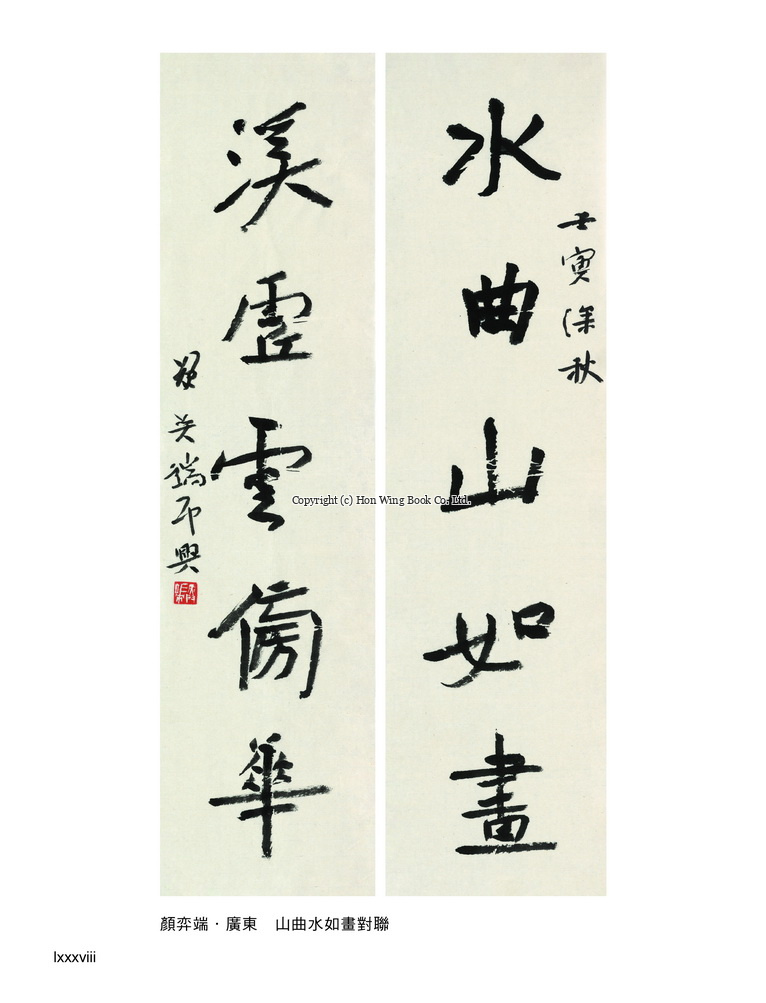 水曲山如畫
壬寅深秋
溪虛雲傍華
端印興
Copyright (c) Hon Wing Book Co. Ltd.
顏弈端·廣東　山曲水如畫對聯
lxxxviii